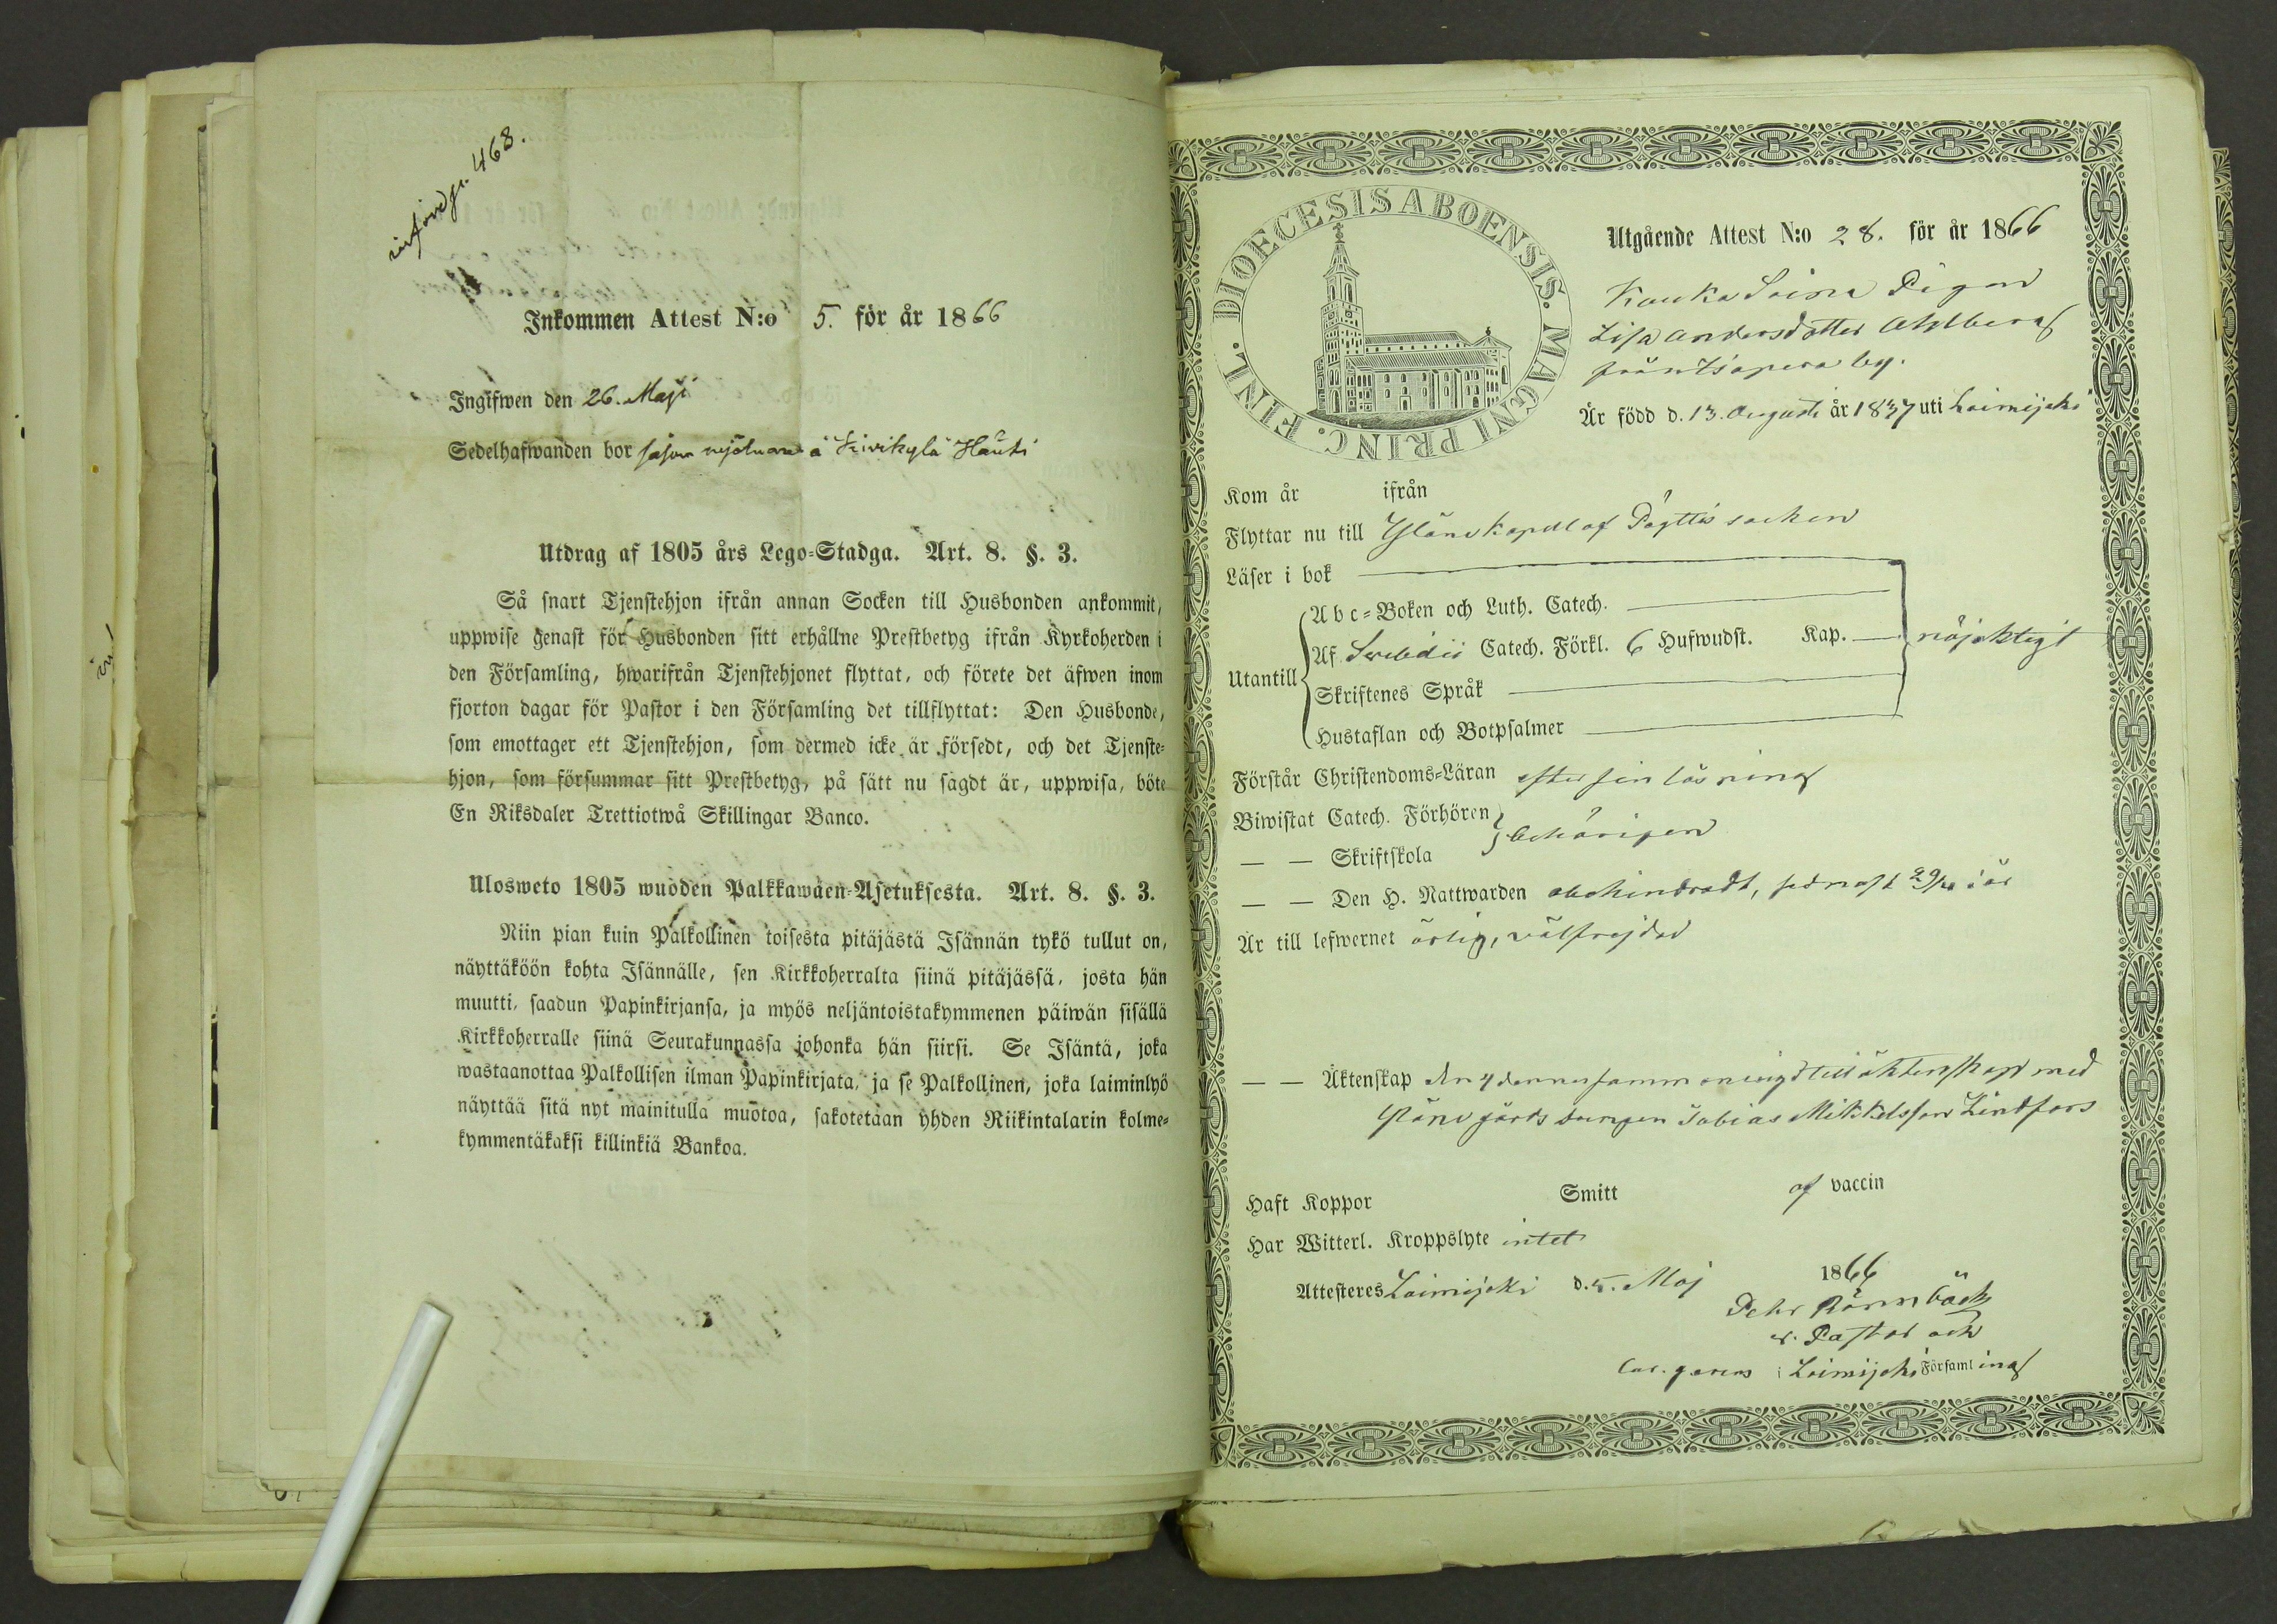 införd p. 468.
Inkommen Attest N:o 5. för år 1866
Ingifwen den 26. Maji
Sedelhafwanden bor såsom å Kivikylä Hauti
Utdrag af 1805 års Lego-Stadga. Art. 8. §. 3.
Så snart Tjenstehjon ifrån annan Socken till Husbonden ankommit,
uppwise genast för Husbonden sitt erhållne Prestbetyg ifrån Kyrkoherden i
den Församling, hwarifrån Tjenstehjonet flyttat, och förete det äfwen inom
fjorton dagar för Pastor i den Församling det tillflyttat: Den Husbonde,
som emottager ett Tjenstehjon, som dermed icke är försedt, och det Tjenste-
hjon, som försummar sitt Prestbetyg, på sätt nu sagdt är, uppwisa, böte
En Riksdaler Trettiotwå Skillingar Banco.
Ulosweto 1805 wuoden Palkkawäen-Asetuksesta. Art. 8. §. 3.
Niin pian kuin Palkollinen toisesta pitäjästä Isännän tykö tullut on,
näyttäköön kohta Isännälle, sen Kirkkoherralta siinä pitäjässä, josta hän
muutti, saadun Papinkirjansa, ja myös neljäntoistakymmenen päiwän sisällä
Kirkkoherralle siinä Seurakunnassa johonka hän siirsi. Se Isäntä, joka
wastaanottaa Palkollisen ilman Papinkirjata, ja se Palkollinen, joka laiminlyö
näyttää sitä nyt mainitulla muotoa, sakotetaan yhden Riikintalarin kolme-
kymmentäkaksi killinkiä Bankoa.
DIOECESIS ABOENSIS. MAGNI PRINC. FINL.
Utgående Attest N:o 28. för år 1866
Kauka Soina Pigan
Lisa Andersdotter Ahlberg
från Isopera by.
Är född d. 13. Augusti år 1837 uti Loimijoki
Kom år ifrån
Flyttar nu till Yläne Kapell af Pöyttis socken
Läser i bok
Utantill
A b c-Boken och Luth. Catech.
Af Svebilii Catech. Förkl. 6 Hufwudst. Kap. nöjaktigt
Skriftenes Språk
Hustaflan och Botpsalmer
Förstår Christendoms-Läran efter sin läsning
Biwistat Catech. Förhören
— — Skriftskola behörigen
— — Den H. Nattwarden obehindradt, sednast 29/4 i år
Är till lefwernet ärlig, välfrejdad
— — Äktenskap den 4 dennes sammanvigd till äktenskap med
Yläne gårds drengen Tobias Mikkelsson Lindfors
Haft Koppor Smitt af vaccin
Har Witterl. Kroppslyte intet
Attesteres Loimijoki d. 5. Maj 1866
Pehr Rönnbäck
v. Pastor och
Cur. gerens i Loimijoki Församling